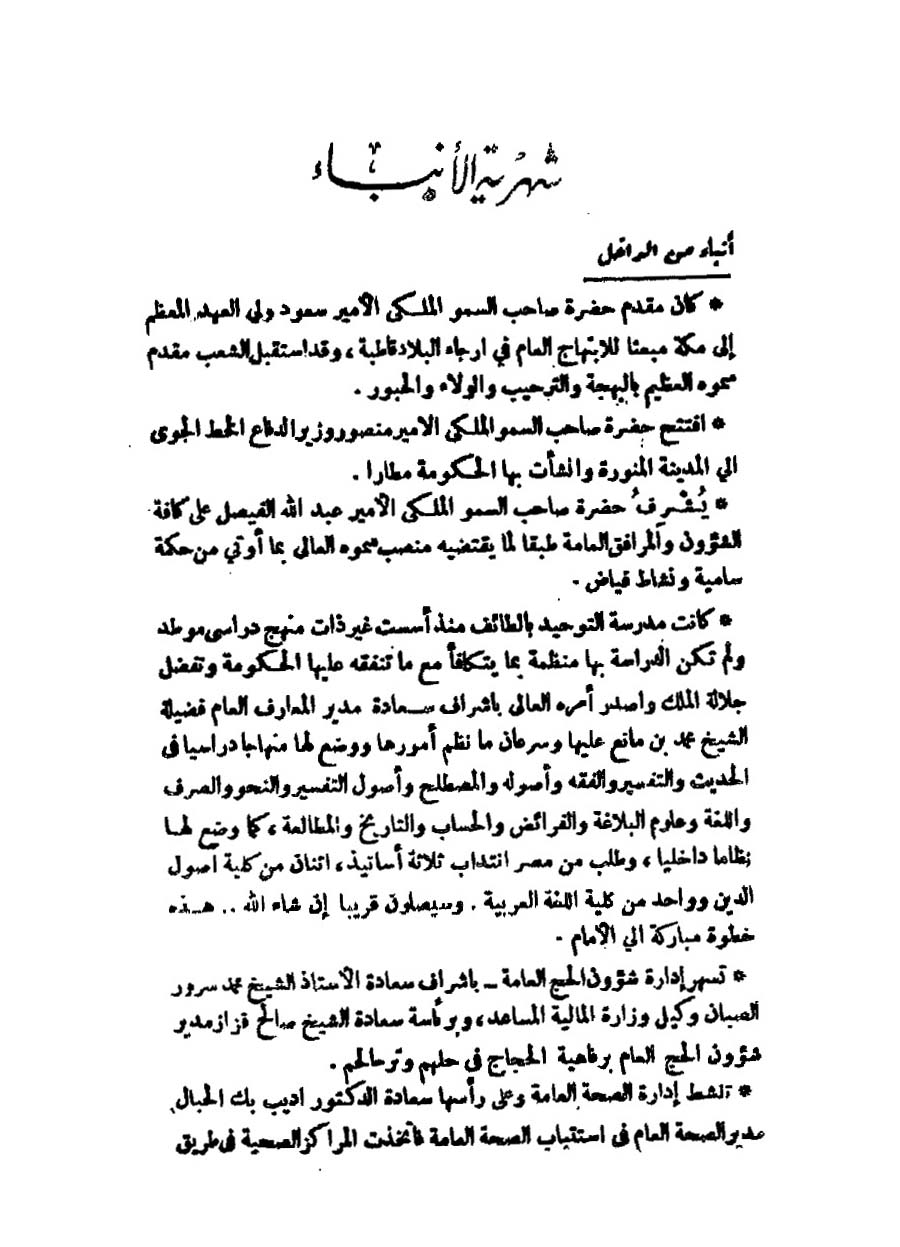 شهرية الأنباء
أنباء من الداخل
* كان مقدم حضرة صاحب السمو الملكى الأمير سعود ولي العهد المعظم
إلى مكة مبعثا للابتهاج العام في ارجاء البلاد قاطبة ، وقد استقبل الشعب مقدم
سموه العظيم بالبهجة والترحيب والولاء والحبور .
* افتتح حضرة صاحب السمو الملكى الامير منصور وزير الدفاع الخط الجوى
الي المدينة المنورة وانشأت بها الحكومة مطارا .
* يُشْرِفُ حضرة صاحب السمو الملكى الأمير عبد الله الفيصل على كافة
الشؤون والمرافق العامة طبقا لما يقتضيه منصب سموه العالى بما أوتي من حكمة
سامية ونشاط فياض .
* كانت مدرسة التوحيد بالطائف منذ أسست غير ذات منهج دراسى موطد
ولم تكن الدراسة بها منظمة بما يتكافأ مع ما تنفقه عليها الحكومة وتفضل
جلالة الملك واصدر أمره العالى باشراف سعادة مدير المعارف العام فضيلة
الشيخ محمد بن مانع عليها وسرعان ما نظم أمورها ووضع لها منهاجا دراسيا فى
الحديث والتفسير والفقه وأصوله والمصطلح وأصول التفسير والنحو والصرف
واللغة وعلوم البلاغة والفرائض والحساب والتاريخ والمطالعة ، كما وضع لهـا
نظاما داخليا ، وطلب من مصر انتداب ثلاثة أساتيذ ، اثنان من كلية أصول
الدين وواحد من كلية اللغة العربية . وسيصلون قريبا إن شاء الله .. هـذه
خطوة مباركة الي الأمام .
* تسهر إدارة شؤون الحج العامة ــ باشراف سعادة الأستاذ الشيخ محمد سرور
الصبان وكيل وزارة المالية المساعد ، وبرئاسة سعادة الشيخ صالح قزاز مدير
شؤون الحج العام برفاهية الحجاج في حلهم وترحالهم .
* تنشط إدارة الصحة العامة وعلى رأسها سعادة الدكتور اديب بك الحبال
مدير الصحة العام فى استتباب الصحة العامة فاتخذت المراكز الصحية فى طريق